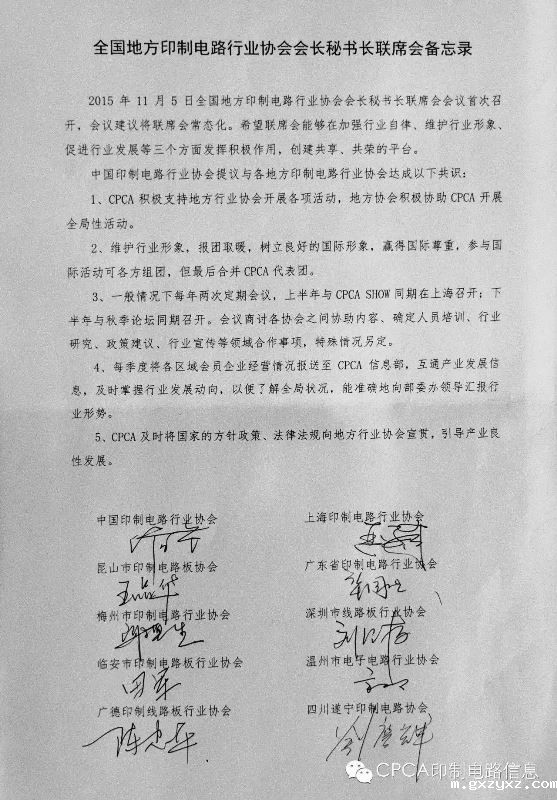 全国地方印制电路行业协会会长秘书长联席会备忘录
2015 年 11 月 5 日全国地方印制电路行业协会会长秘书长联席会会议首次召
开，会议建议将联席会常态化。希望联席会能够在加强行业自律、维护行业形象、
促进行业发展等三个方面发挥积极作用，创建共享、共荣的平台。
中国印制电路行业协会提议与各地方印制电路行业协会达成以下共识：
1、CPCA 积极支持地方行业协会开展各项活动，地方协会积极协助 CPCA 开展
全局性活动。
2、维护行业形象，报团取暖，树立良好的国际形象，赢得国际尊重，参与国
际活动可各方组团，但最后合并 CPCA 代表团。
3、一般情况下每年两次定期会议，上半年与 CPCA SHOW 同期在上海召开；下
半年与秋季论坛同期召开。会议商讨各协会之间协助内容、确定人员培训、行业
研究、政策建议、行业宣传等领域合作事项，特殊情况另定。
4、每季度将各区域会员企业经营情况报送至 CPCA 信息部，互通产业发展信
息，及时掌握行业发展动向，以便了解全局状况，能准确地向部委办领导汇报行
业形势。
5、CPCA 及时将国家的方针政策、法律法规向地方行业协会宣贯，引导产业良
性发展。
中国印制电路行业协会 上海印制电路行业协会
昆山市印制电路板协会 广东省印制电路行业协会
梅州市印制电路行业协会 深圳市线路板行业协会
临安市印制电路板行业协会 温州市电子电路行业协会
广德印制线路板行业协会 四川遂宁印制电路协会
CPCA印制电路信息
m.gxzyxz.cn